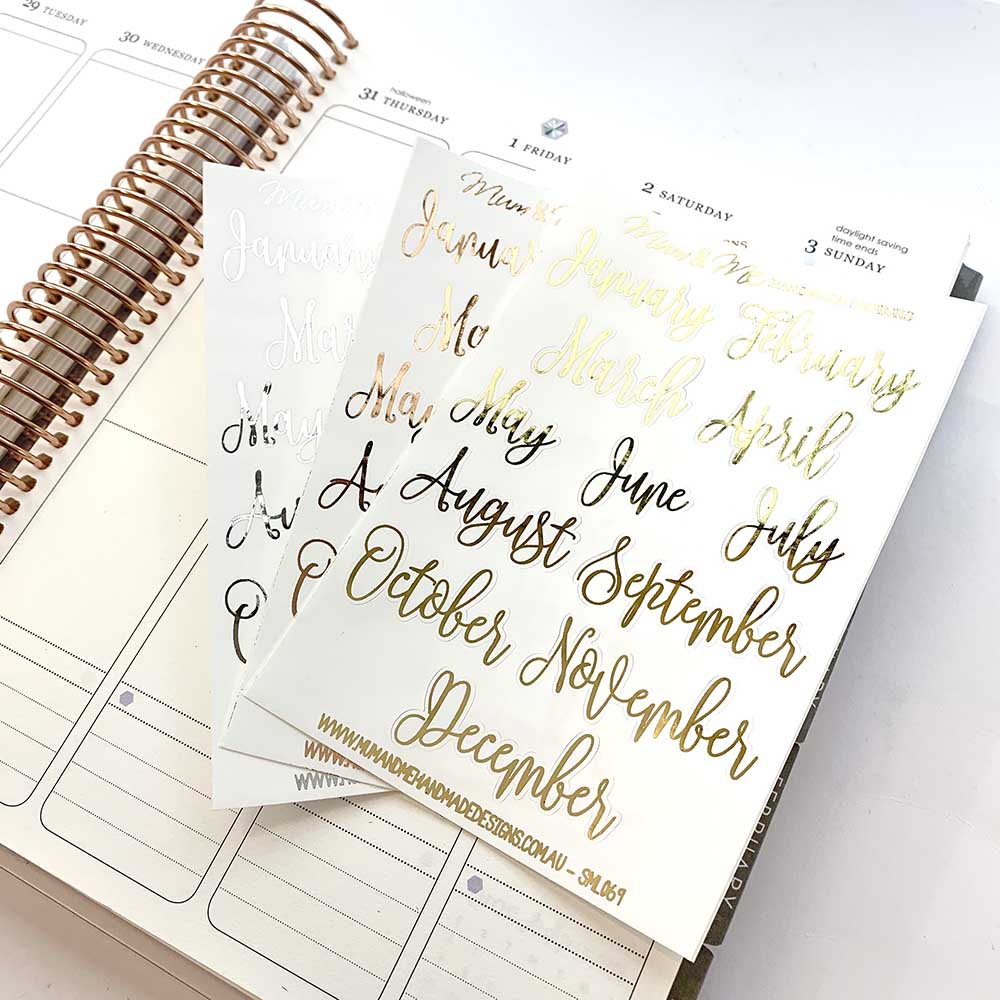 29 TUESDAY
30 WEDNESDAY
halloween
31 THURSDAY
1 FRIDAY
2 SATURDAY
daylight saving
time ends
3 SUNDAY
Mum
January
Mar
May
Au
O
WWW.
Mum &
January
Ma
May
A
O
WWW.
Mum & Me HANDMADE DESIGNS
January February
March April
May June July
August September
October November
December
WWW.MUMANDMEHANDMADEDESIGNS.COM.AU - SML069
FEBRUARY